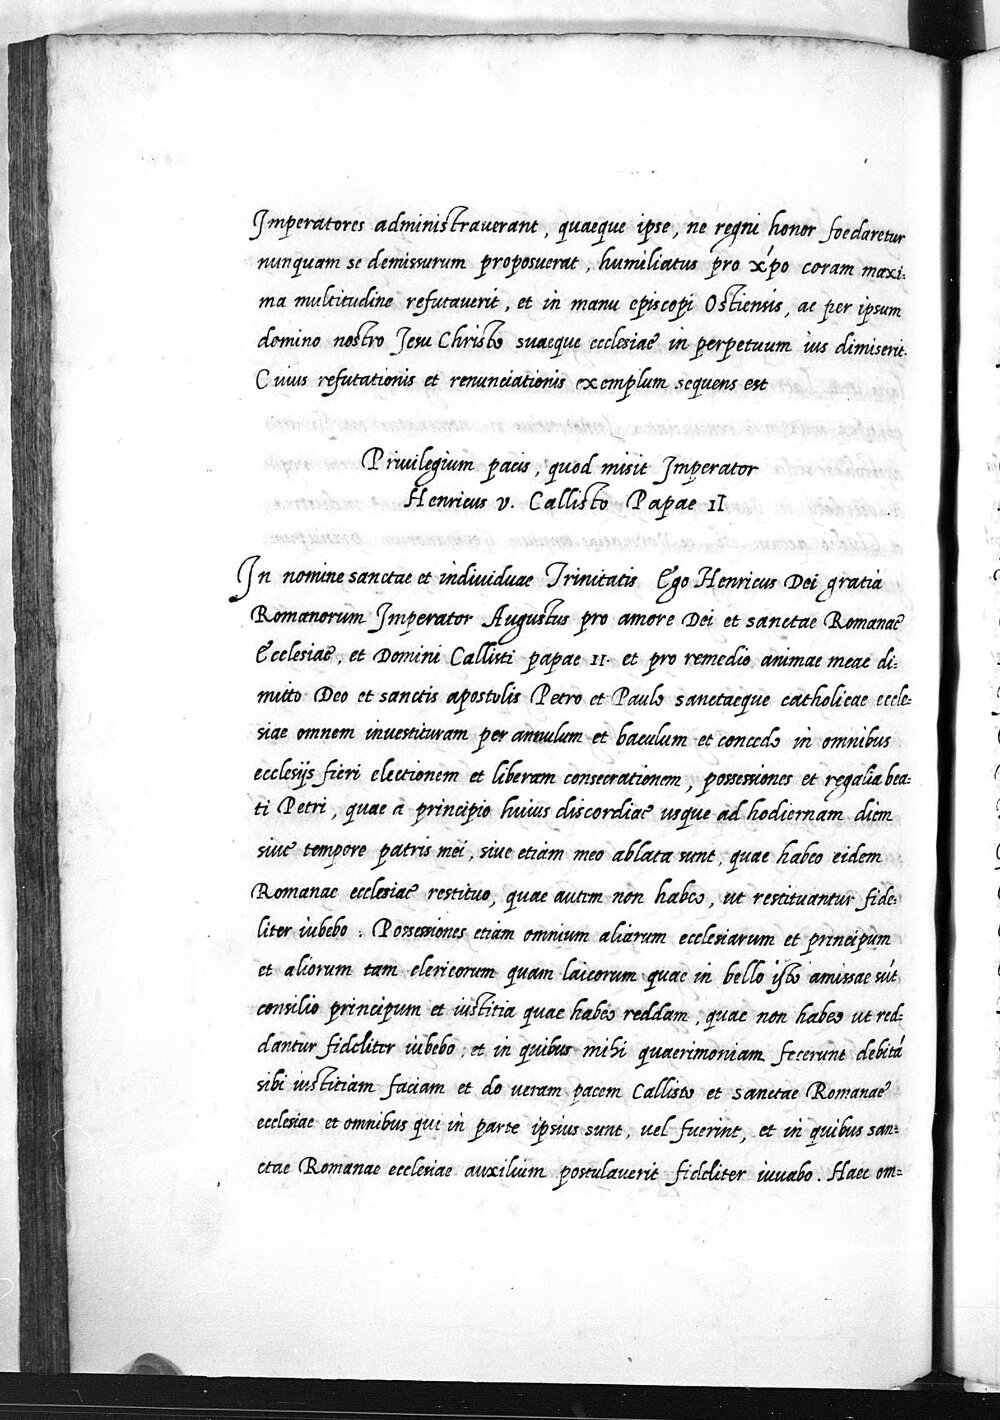 Imperatores administraverant, quaeque ipse, ne regni honor foedaretur
nunquam se demissurum proposuerat, humiliatus pro x̃po coram maxi:
ma multitudine refutaverit, et in manu episcopi Ostiensis, ac per ipsum
domino nostro Jesu Christo suaeque ecclesiae in perpetuum ius dimiserit.
Cuius refutationis et renunciationis exemplum sequens est
Privilegium pacis, quod misit Imperator
Henricus V. Callisto Papae II
In nomine sanctae et individuae Trinitatis Ego Henricus Dei gratia
Romanorum Imperator Augustus pro amore Dei et sanctae Romanae
Ecclesiae, et Domini Callisti papae II. et pro remedio animae meae di:
mitto Deo et sanctis apostolis Petro et Paulo sanctaeque catholicae eccle:
siae omnem investituram per annulum et baculum et concedo in omnibus
ecclesijs fieri electionem et liberam consecrationem, possessiones et regalia bea:
ti Petri, quae a principio huius discordiae usque ad hodiernam diem
sive tempore patris mei, sive etiam meo ablata sunt, quae habeo eidem
Romanae ecclesiae restituo, quae autem non habeo, ut restituantur fide:
liter iubebo. Possessiones etiam omnium aliarum ecclesiarum et principum
et aliorum tam clericorum quam laicorum quae in bello isto amissae sũt
consilio principum et iustitia quae habeo reddam, quae non habeo ut red:
dantur fideliter iubebo, et in quibus mihi quaerimoniam fecerunt debitã
sibi iustitiam faciam et do veram pacem Callisto et sanctae Romanae
ecclesiae et omnibus qui in parte ipsius sunt, vel fuerint, et in quibus san:
ctae Romanae ecclesiae auxilium postulaverit fideliter iuvabo. Haec om=